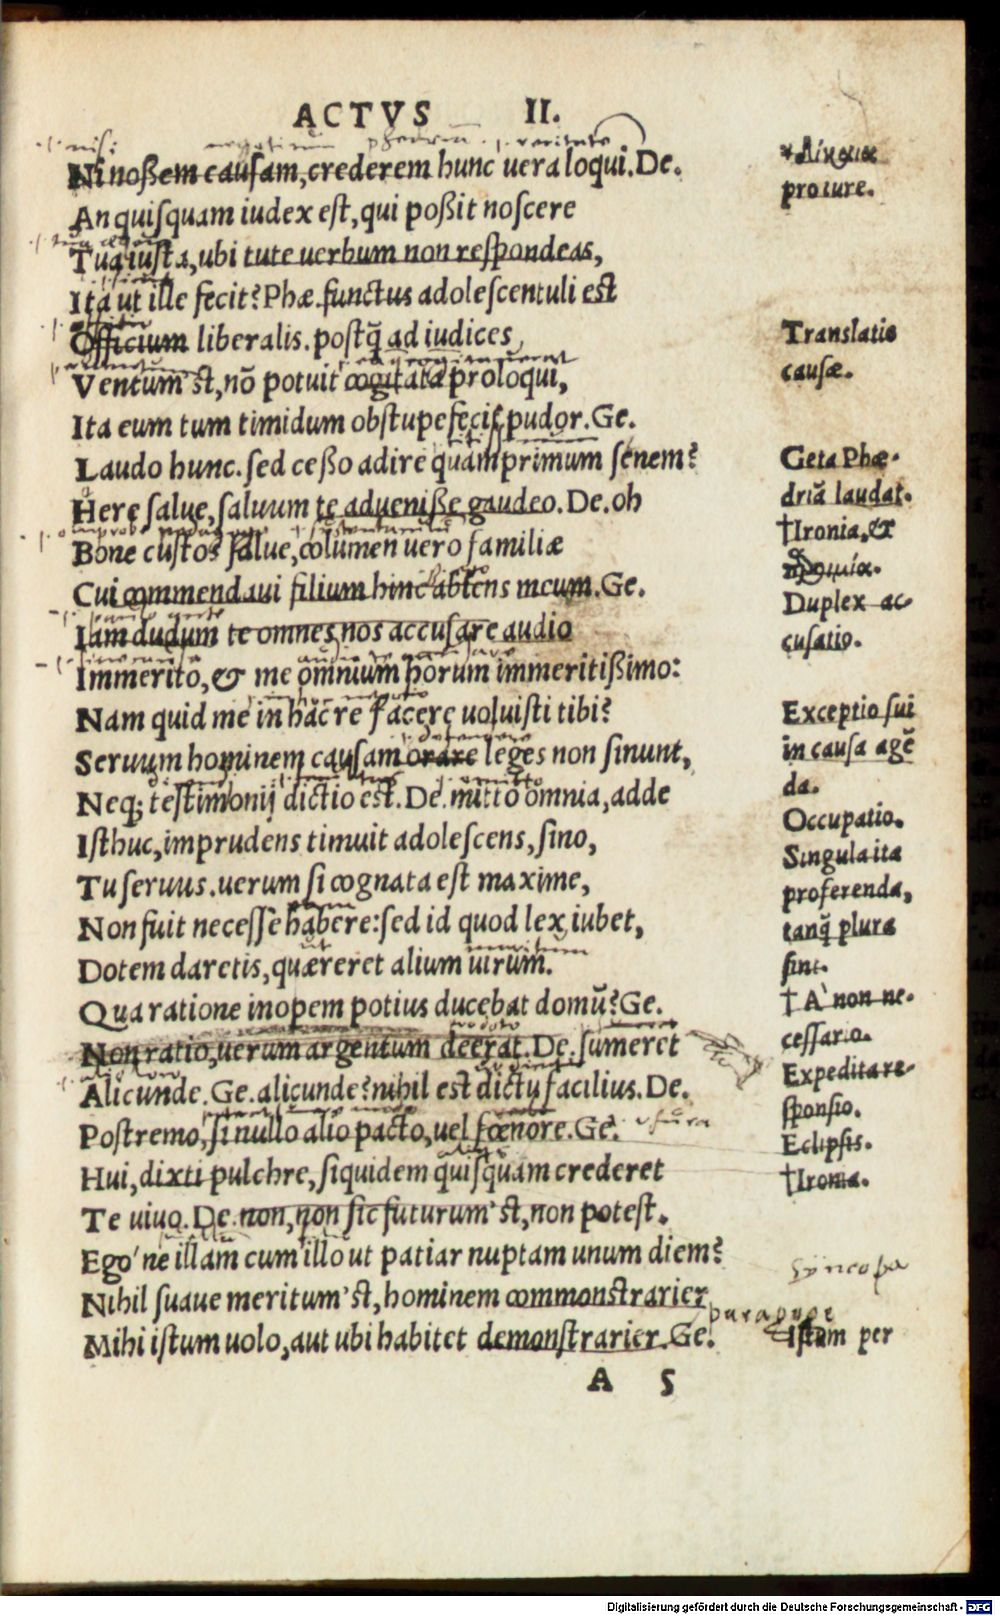 ACTVS II.
Ni noßem causam, crederem hunc uera loqui. De.
An quisquam iudex est, qui poßit noscere
Tua iusta, ubi tute uerbum non respondeas,
Ita ut ille fecit? Phæ. functus adolescentuli est
Officium liberalis. postq̃ ad iudices
Ventum'st, nõ potuit cogitata proloqui,
Ita eum tum timidum obstupefecit pudor. Ge.
Laudo hunc. sed ceßo adire quamprimum senem?
Here salue, saluum te adueniße gaudeo. De. oh
Bone custos salue, columen uero familiæ
Cui commendaui filium hinc abiens meum. Ge.
Iam dudum te omnes nos accusare audio
Immerito, & me omnium horum immeritißimo:
Nam quid me in hac re facere uoluisti tibi?
Seruum hominem causam orare leges non sinunt,
Neq; testimonij dictio est. De. mitto omnia, adde
Isthuc, imprudens timuit adolescens, sino,
Tu seruus. uerum si cognata est maxime,
Non fuit necesse habere: sed id quod lex iubet,
Dotem daretis, quæreret alium uirum.
Qua ratione inopem potius ducebat domũ? Ge.
Non ratio, uerum argentum deerat. De. sumeret
Alicunde. Ge. alicunde? nihil est dictu facilius. De.
Postremo, si nullo alio pacto, uel fœnore. Ge.
Hui, dixti pulchre, siquidem quisquam crederet
Te uiuo. De. non, non sic futurum'st, non potest.
Ego'ne illam cum illo ut patiar nuptam unum diem?
Nihil suaue meritum'st, hominem commonstrarier
Mihi istum uolo, aut ubi habitet demonstrarier. Ge.
A 5
proiure.
Translatio
causæ.
Geta Phæ-
driã laudat.
†Ironia, &
Duplex ac
cusatio.
Exceptio sui
in causa agẽ
da.
Occupatio.
Singula ita
proferenda,
tanq̃ plura
sint.
†A' non ne-
cessario.
Expedita re-
sponsio.
Eclipsis.
†Ironia.
Syncopa
Istum per